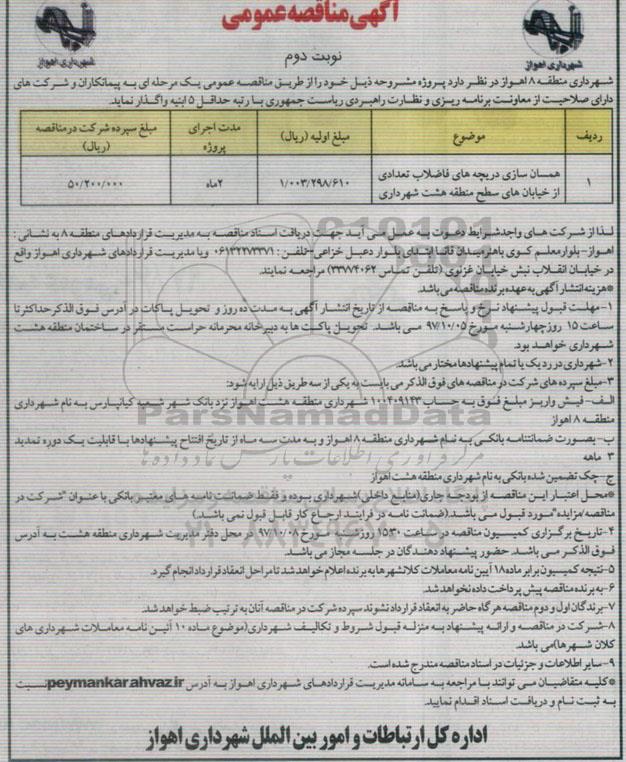 آگهی مناقصه عمومی
شهرداری اهواز
شهرداری اهواز
نوبت دوم
شهرداری منطقه ۸ اهواز در نظر دارد پروژه مشروحه ذیل خود را از طریق مناقصه عمومی یک مرحله ای به پیمانکاران و شرکت های
دارای صلاحیت از معاونت برنامه ریزی و نظارت راهبردی ریاست جمهوری با رتبه حداقل ۵ ابنیه واگذار نماید.
ردیف موضوع مبلغ اولیه (ریال) مدت اجرای پروژه مبلغ سپرده شرکت در مناقصه (ریال)
۱ همسان سازی دریچه های فاضلاب تعدادی از خیابان های سطح منطقه هشت شهرداری ۱/۰۰۳/۲۹۸/۶۱۰ ۲ماه ۵۰/۲۰۰/۰۰۰
لذا از شرکت های واجدشرایط دعوت به عمل می آید جهت دریافت اسناد مناقصه به مدیریت قراردادهای منطقه ۸ به نشانی :
اهواز-بلوارمعلم کوی باهنرمیدان قائم ابتدای بلوار دعبل خزاعی-تلفن: ۰۶۱۳۲۲۷۳۳۷۱ ویا مدیریت قراردادهای شهرداری اهواز واقع
در خیابان انقلاب نبش خیابان غزنوی (تلفن تماس ۳۳۷۷۴۰۶۲) مراجعه نمایند.
*هزینه انتشار آگهی به عهده برنده مناقصه می باشد.
۱-مهلت قبول پیشنهاد نرخ و پاسخ به مناقصه از تاریخ انتشار آگهی به مدت ده روز و تحویل پاکات در آدرس فوق الذکر حداکثر تا
ساعت ۱۵ روز چهارشنبه مورخ ۹۷/۱۰/۰۵ می باشد. تحویل پاکت ها به دبیرخانه محرمانه حراست مستقر در ساختمان منطقه هشت
شهرداری خواهد بود.
۲-شهرداری در رد یک یا تمام پیشنهادها مختار می باشد.
۳-مبلغ سپرده های شرکت در مناقصه های فوق الذکر می بایست به یکی از سه طریق ذیل ارایه شود:
الف- فیش واریز مبلغ فوق به حساب ۱۰۰۴۰۹۱۴۳ شهرداری منطقه هشت اهواز نزد بانک شهر شعبه کیانپارس به نام شهرداری
منطقه ۸ اهواز
ب-بصورت ضمانتنامه بانکی به نام شهرداری منطقه ۸ اهواز و به مدت سه ماه از تاریخ افتتاح پیشنهادها با قابلیت یک دوره تمدید
۳ ماهه
ج- چک تضمین شده بانکی به نام شهرداری منطقه هشت اهواز
*محل اعتبار این مناقصه از بودجه جاری(منابع داخلی)شهرداری بوده و فقط ضمانت نامه های معتبر بانکی با عنوان "شرکت در
مناقصه/مزایده"مورد قبول می باشد.(ضمانت نامه در فرایند ارجاع کار قابل قبول نمی باشد.)
۴-تاریخ برگزاری کمیسیون مناقصه در ساعت ۱۵:۳۰ روز شنبه مورخ ۹۷/۱۰/۰۸ در محل دفتر مدیریت شهرداری منطقه هشت به آدرس
فوق الذکر می باشد. حضور پیشنهاد دهندگان در جلسه مجاز می باشد.
۵-نتیجه کمیسیون برابر ماده ۱۸ آیین نامه معاملات کلانشهرها به برنده اعلام خواهد شد تا مراحل انعقاد قرارداد انجام گیرد.
۶-به برنده مناقصه پیش پرداخت داده نخواهد شد.
۷-برندگان اول و دوم مناقصه هر گاه حاضر به انعقاد قرارداد نشوند سپرده شرکت در مناقصه آنان به ترتیب ضبط خواهد شد.
۸-شرکت در مناقصه و ارائه پیشنهاد به منزله قبول شروط و تکالیف شهرداری(موضوع ماده ۱۰ آئین نامه معاملات شهرداری های
کلان شهرها)می باشد.
۹-سایر اطلاعات و جزئیات در اسناد مناقصه مندرج شده است.
*کلیه متقاضیان می توانند با مراجعه به سامانه مدیریت قراردادهای شهرداری اهواز به آدرس peymankar.ahvaz.ir نسبت
به ثبت نام و دریافت اسناد اقدام نمایند.
اداره کل ارتباطات و امور بین الملل شهرداری اهواز
ParsNamadData
مرکز فرآوری اطلاعات پارس نماد داده ها